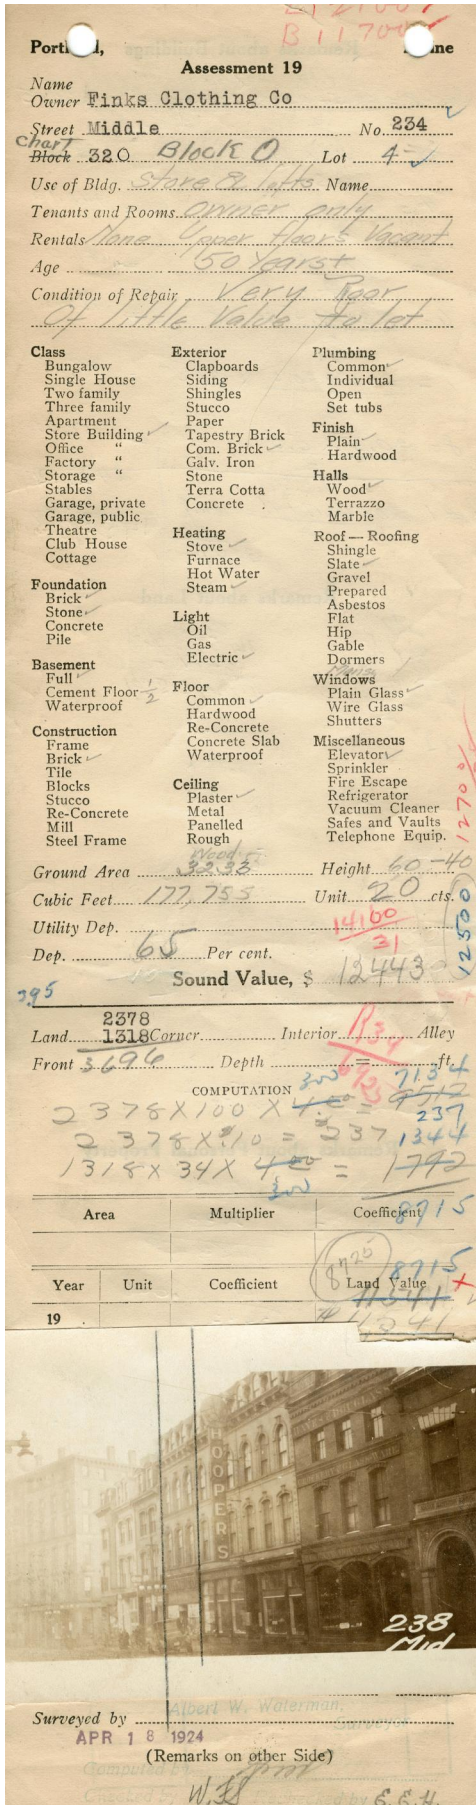 L 12100
B 11700
Portland, Maine
Assessment 19
Name
Owner Finks Clothing Co
Street Middle No. 234
Chart
Block 320 Block O Lot 4
Use of Bldg. Store & lofts Name
Tenants and Rooms owner only
Rentals None Upper floors Vacant
Age 50 Years+
Condition of Repair Very Poor
Of little Value to let
Class
Bungalow
Single House
Two family
Three family
Apartment
Store Building
Office "
Factory "
Storage "
Stables
Garage, private
Garage, public
Theatre
Club House
Cottage
Foundation
Brick
Stone
Concrete
Pile
Basement
Full
Cement Floor 1/2
Waterproof
Construction
Frame
Brick
Tile
Blocks
Stucco
Re-Concrete
Mill
Steel Frame
Exterior
Clapboards
Siding
Shingles
Stucco
Paper
Tapestry Brick
Com. Brick
Galv. Iron
Stone
Terra Cotta
Concrete
Heating
Stove
Furnace
Hot Water
Steam
Light
Oil
Gas
Electric
Floor
Common
Hardwood
Re-Concrete
Concrete Slab
Waterproof
Ceiling
Plaster
Metal
Panelled
Rough
Wood
Plumbing
Common
Individual
Open
Set tubs
Finish
Plain
Hardwood
Halls
Wood
Terrazzo
Marble
Roof — Roofing
Shingle
Slate
Gravel
Prepared
Asbestos
Flat
Hip
Gable
Dormers
Windows
Plain Glass
Wire Glass
Shutters
Miscellaneous
Elevator
Sprinkler
Fire Escape
Refrigerator
Vacuum Cleaner
Safes and Vaults
Telephone Equip.
1270%
Ground Area 3233 Height 60-40
Cubic Feet 177,755 Unit 20 cts.
12500
Utility Dep. 14100
31
Dep. 65 Per cent.
Sound Value, $ 12443
395
2378
Land 1318 Corner Interior Alley
Front 3696 Depth ft.
COMPUTATION 300 7134
2378 X 100 X 4.00 = 9512
237
2378 X 10 = 237 1344
1318 X 34 X 4.00 = 1792
300
Area Multiplier Coefficient
8715
8725 8715
Year Unit Coefficient Land Value
11541
19 11541
HOOPERS
238
Mid
Albert W. Waterman,
Surveyed by Surveyor
APR 18 1924
(Remarks on other Side)
Computed by
W.F.S. Rechecked by E.E.H.